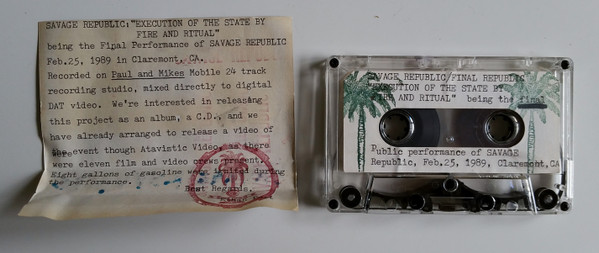 SAVAGE REPUBLIC: "EXECUTION OF THE STATE BY
FIRE AND RITUAL"
being the Final Performance of SAVAGE REPUBLIC
Feb.25, 1989 in Claremont, CA.
Recorded on Paul and Mikes Mobile 24 track
recording studio, mixed directly to digital
DAT video. We're interested in releasing
this project as an album, a C.D., and we
have already arranged to release a video of
the event though Atavistic Video, as there
were eleven film and video crews present.
Eight gallons of gasoline were ignited during
the performance.
Best Regards,
SAVAGE REPUBLIC/FINAL REPUBLIC
"EXECUTION OF THE STATE BY
FIRE AND RITUAL" being the final
Public performance of SAVAGE
Republic, Feb.25, 1989, Claremont,CA